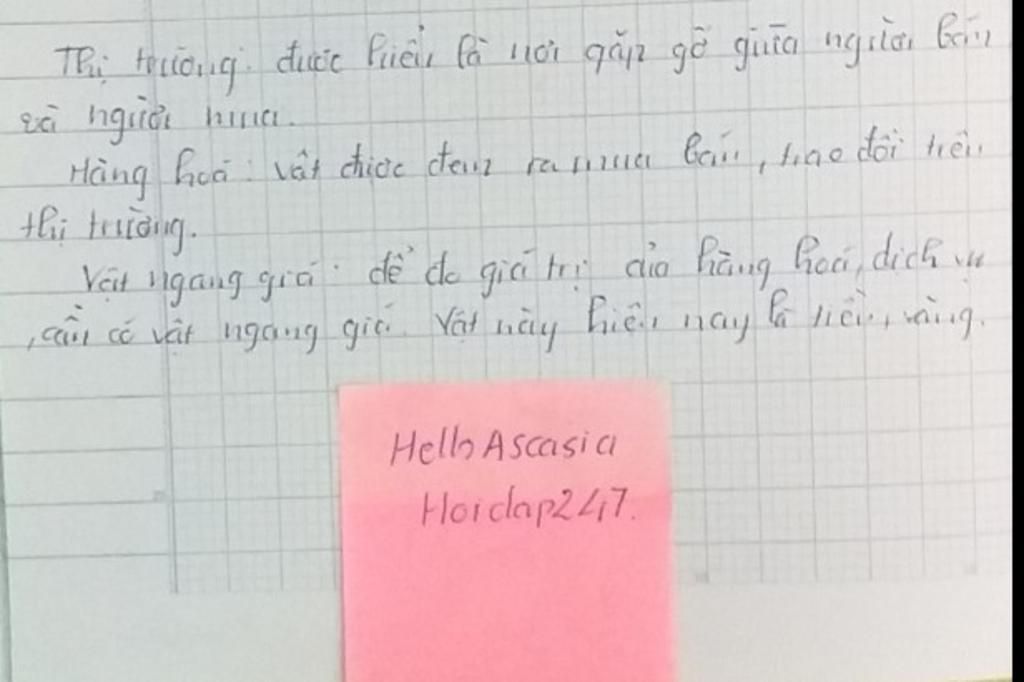 Thị trường: được hiểu là nơi gặp gỡ giữa người bán
và người mua.
Hàng hoá: vật được đem ra mua bán, trao đổi trên
thị trường.
Vật ngang giá: để đo giá trị của hàng hoá, dịch vụ
, cần có vật ngang giá. Vật này hiện nay là tiền, vàng.
Hello Ascasia
Hoidap247.